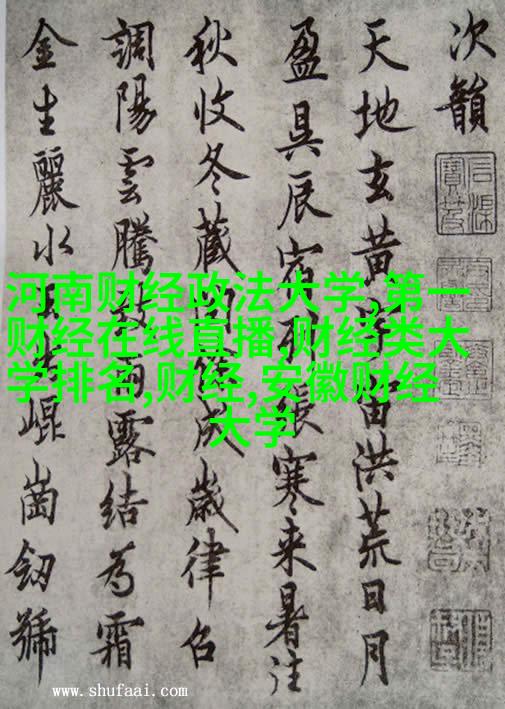 次韻
天地玄黄宙洪荒日月
盈昃辰宿列寒来暑往
秋收冬藏閏成歲律召
調陽雲騰雨露結為霜
金生麗水出崐崗劒號
河南财经政法大学,第一
财经在线直播,财经类大
学排名,财经,安徽财经
大学
www.shufaai.com